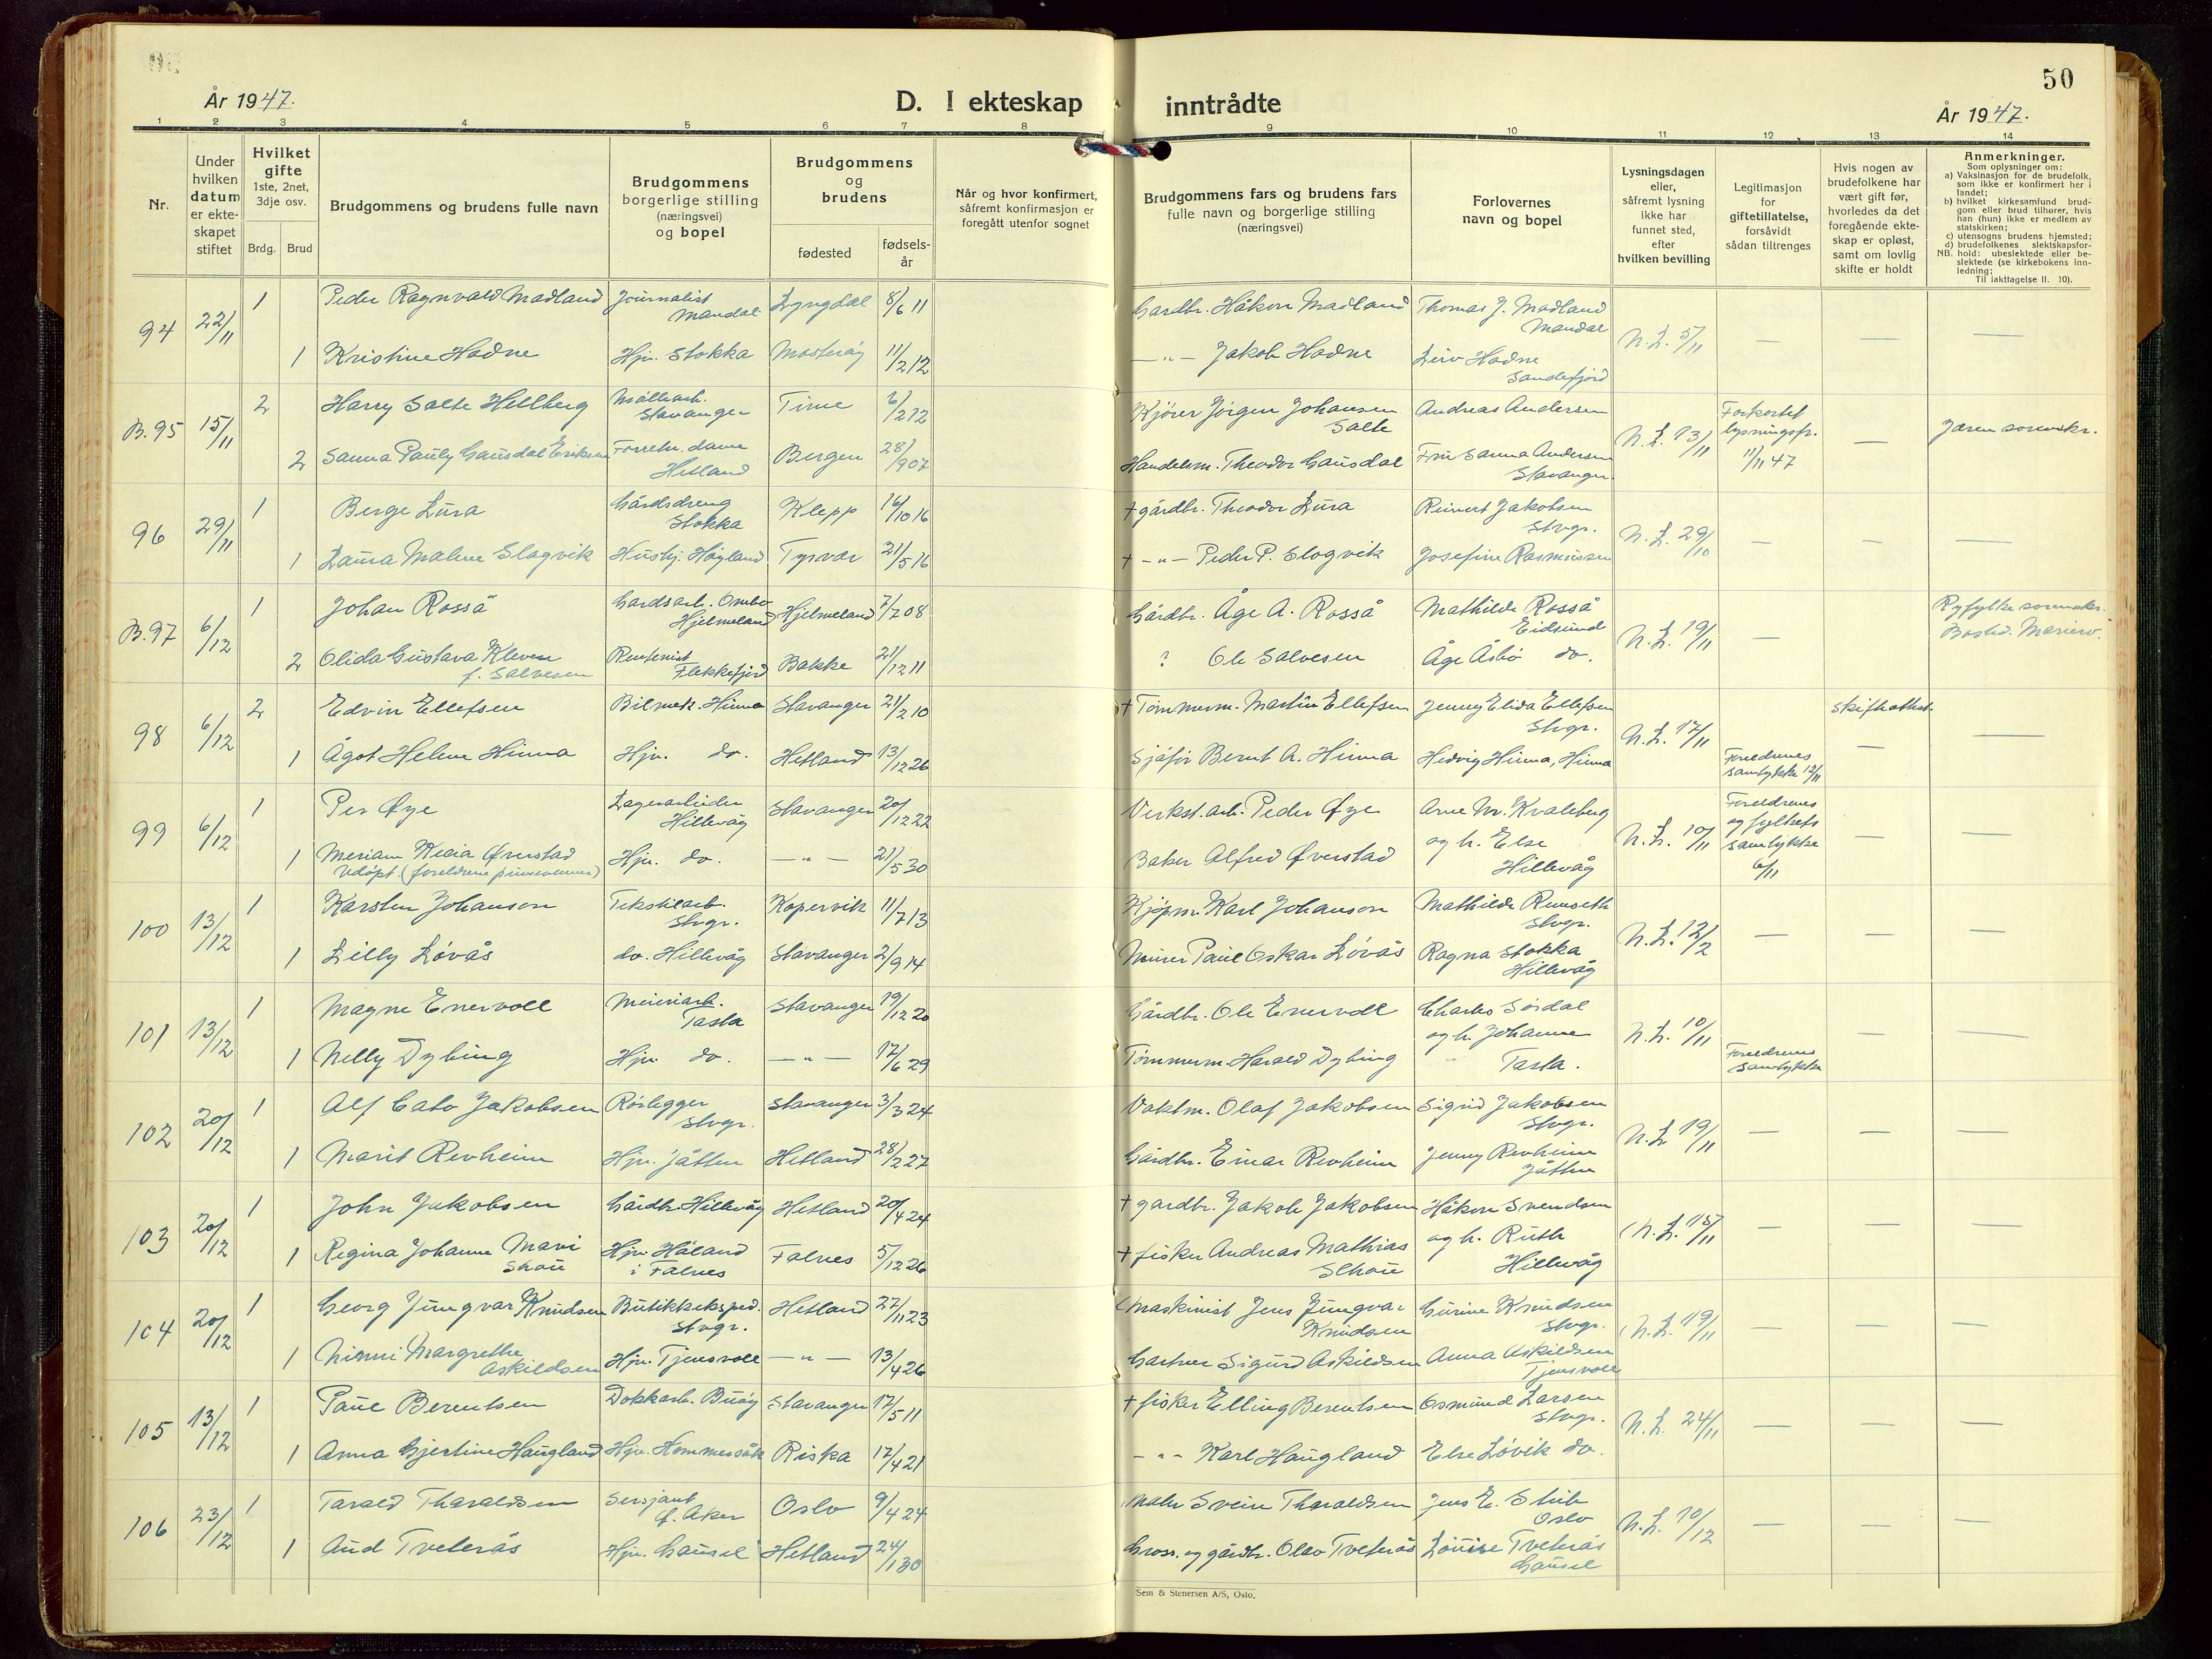 50
År 1947.
D. I ekteskap inntrådte
År 1947.
1 2 3 4 5 6 7 8 9 10 11 12 13 14
Nr.
Under hvilken datum er ekteskapet stiftet
Hvilket gifte 1ste, 2net, 3dje osv.
Brdg. Brud
Brudgommens og brudens fulle navn
Brudgommens borgerlige stilling (næringsvei) og bopel
Brudgommens og brudens
fødested
fødselsår
Når og hvor konfirmert, såfremt konfirmasjon er foregått utenfor sognet
Brudgommens fars og brudens fars fulle navn og borgerlige stilling (næringsvei)
Forlovernes navn og bopel
Lysningsdagen eller, såfremt lysning ikke har funnet sted, efter hvilken bevilling
Legitimasjon for giftetillatelse, forsåvidt sådan tiltrenges
Hvis nogen av brudefolkene har vært gift før, hvorledes da det foregående ekteskap er opløst, samt om lovlig skifte er holdt
Anmerkninger.
Som oplysninger om:
a) Vaksinasjon for de brudefolk, som ikke er konfirmert her i landet;
b) hvilket kirkesamfund brudgom eller brud tilhører, hvis han (hun) ikke er medlem av statskirken;
c) utensogns brudens hjemsted;
d) brudefolkenes slektskapsforhold: ubeslektede eller beslektede (se kirkebokens innledning;
NB.
Til iakttagelse II. 10).
94 22/11 1 Peder Ragnvald Madland Journalist Mandal Lyngdal 8/6 11 Gardbr. Håkon Madland Thomas J. Madland Mandal N.L. 5/11 — — —
1 Kristine Hadne Hjv. Stokka Mosterøy 11/2 12 —"— Jakob Hadne Hadne Sandefjord
B.95 15/11 2 Harry Salte Hellberg Stavanger Time 6/2 12 Kjører Jørgen Johansen Salte Andreas Andersen N.L. 13/11 Forkortet lysningsfr. 11/11 47 — Jæren sorenskr.
2 Sanna Pauly Gausdal Eriksen Forretn. dame Hetland Bergen 28/ 907 Handelsm. Theodor Gausdal Fru Sanna Andersen Stavanger
96 29/11 1 Berge Lura Gårdsdreng Stokka Klepp 16/10 16 † gårdbr. Theodor Lura Reinert Jakobsen Stvgr. N.L. 29/10 — — —
1 Laura Malene Slogvik Hushj. Høgland Tysvær 21/5 16 † —"— Peder P. Slogvik Josefine Rasmussen
B.97 6/12 1 Johan Rosså Gardsarb. Ombo Hjelmeland Hjelmeland 7/7 08 Gårdbr. Åge A. Rosså Mathilde Rosså Eidsund N.L. 19/11 — Ryfylke sorenskr.
2 Olida Gustava Kleven f. Salvesen Rentenist Flekkefjord Bakke 21/12 11 ? Ole Salvesen Åge Åsbø do.
98 6/12 2 Edvin Ellefsen Bilmek. Hinna Stavanger 21/2 10 † Tømmerm. Martin Ellefsen Jenny Elida Ellefsen Stvgr. N.L. 17/11 skifteattest.
1 Ågot Helene Hinna Hjv. do. Hetland 13/12 26 Sjåfør Bernt A. Hinna Hedvig Hinna, Hinna Foreldrenes samtykke 12/11 — —
99 6/12 1 Per Øye Lagerarbeider Hillevåg Stavanger 20/12 22 Verkst.arb. Peder Øye Arne M. Kvaleberg og h. Else Hillevåg N.L. 10/11 Foreldrenes og fylkets samtykke 6/11 — —
1 Meriam Øverstad Udøpt. (foreldrene pinsevenner) Hjv. do. —"— 21/5 30 Baker Alfred Øverstad
100 13/12 1 Karsten Johanson Tekstilarb. Stvgr. Kopervik 11/7 13 Kjøpm. Karl Johanson Mathilde Stvgr. N.L. 12/2 — — —
1 Lilly Løvås do. Hillevåg Stavanger 2/9 14 Murer Paul Oskar Løvås Ragna Stokka Hillevåg
101 13/12 1 Magne Enervoll Meieriarb. Tasta Stavanger 19/12 20 Gårdbr. Ole Enervoll Charles Sørdal og h. Johanne Tasta. N.L. 10/11 — —
1 Nelly Dybing Hjv. do. —"— 17/6 29 Tømmerm. Harald Dybing Foreldrenes samtykke
102 20/12 1 Alf Cato Jakobsen Rørlegger Stvgr. Stavanger 3/3 24 Vaktm. Olaf Jakobsen Sigrid Jakobsen Stvgr. N.L. 19/11 — — —
1 Marit Revheim Hjv. Jåtten Hetland 28/2 27 Gårdbr. Einar Revheim Jenny Revheim Jåtten
103 20/12 1 John Jakobsen Gårdbr. Hillevåg Hetland 20/4 24 † gardbr. Jakob Jakobsen Håkon Svendsen og h. Ruth Hillevåg N.L. 15/11 — — —
1 Regina Johanne Mari Skau Hjv. Håland i Falnes Falnes 5/12 26 † fisker Andreas Mathias Skau
104 20/12 1 Georg Jungvar Knudsen Butikkeksped. Stvgr. Hetland 27/11 23 Maskinist Jens Jungvar Knudsen Gurine Knudsen Stvgr. N.L. 19/11 — — —
1 Margrethe Askildsen Hjv. Tjensvoll —"— 13/4 26 Gartner Sigurd Askildsen Anna Askildsen Tjensvoll
105 13/12 1 Paul Berentsen Dokkarb. Buøy Stavanger 17/5 11 † fisker Elling Berentsen Osmund Larsen Stvgr. N.L. 24/11 — — —
1 Anna Gjertine Haugland Hjv. Hommersåk Riska 17/4 21 —"— Karl Haugland Else Løvik do.
106 23/12 1 Tarald Tharaldsen Sersjant Aker Oslo 9/4 24 Maler Svein Tharaldsen Jens E. Oslo N.L. 10/12 — — —
1 Aud Tveterås Hjv. Gausel Hetland 24/1 30 Gross. og gårdbr. Olav Tveterås Louise Tveterås Gausel
Sem & Stenersen A/S, Oslo.